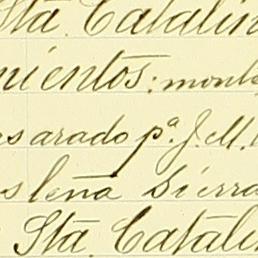 Sta. Catalin
mientos: mont
s arado pa. J. M.
leña Sierra
Sta. Catali